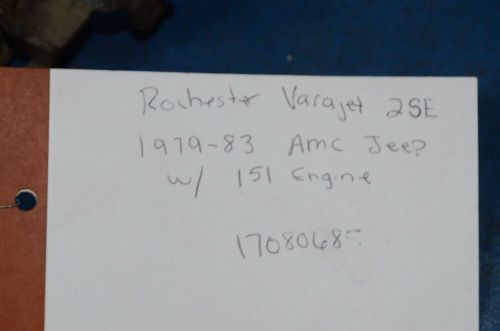 Rochester Varajet 2SE
1979-83 AMC Jeep
w/ 151 Engine